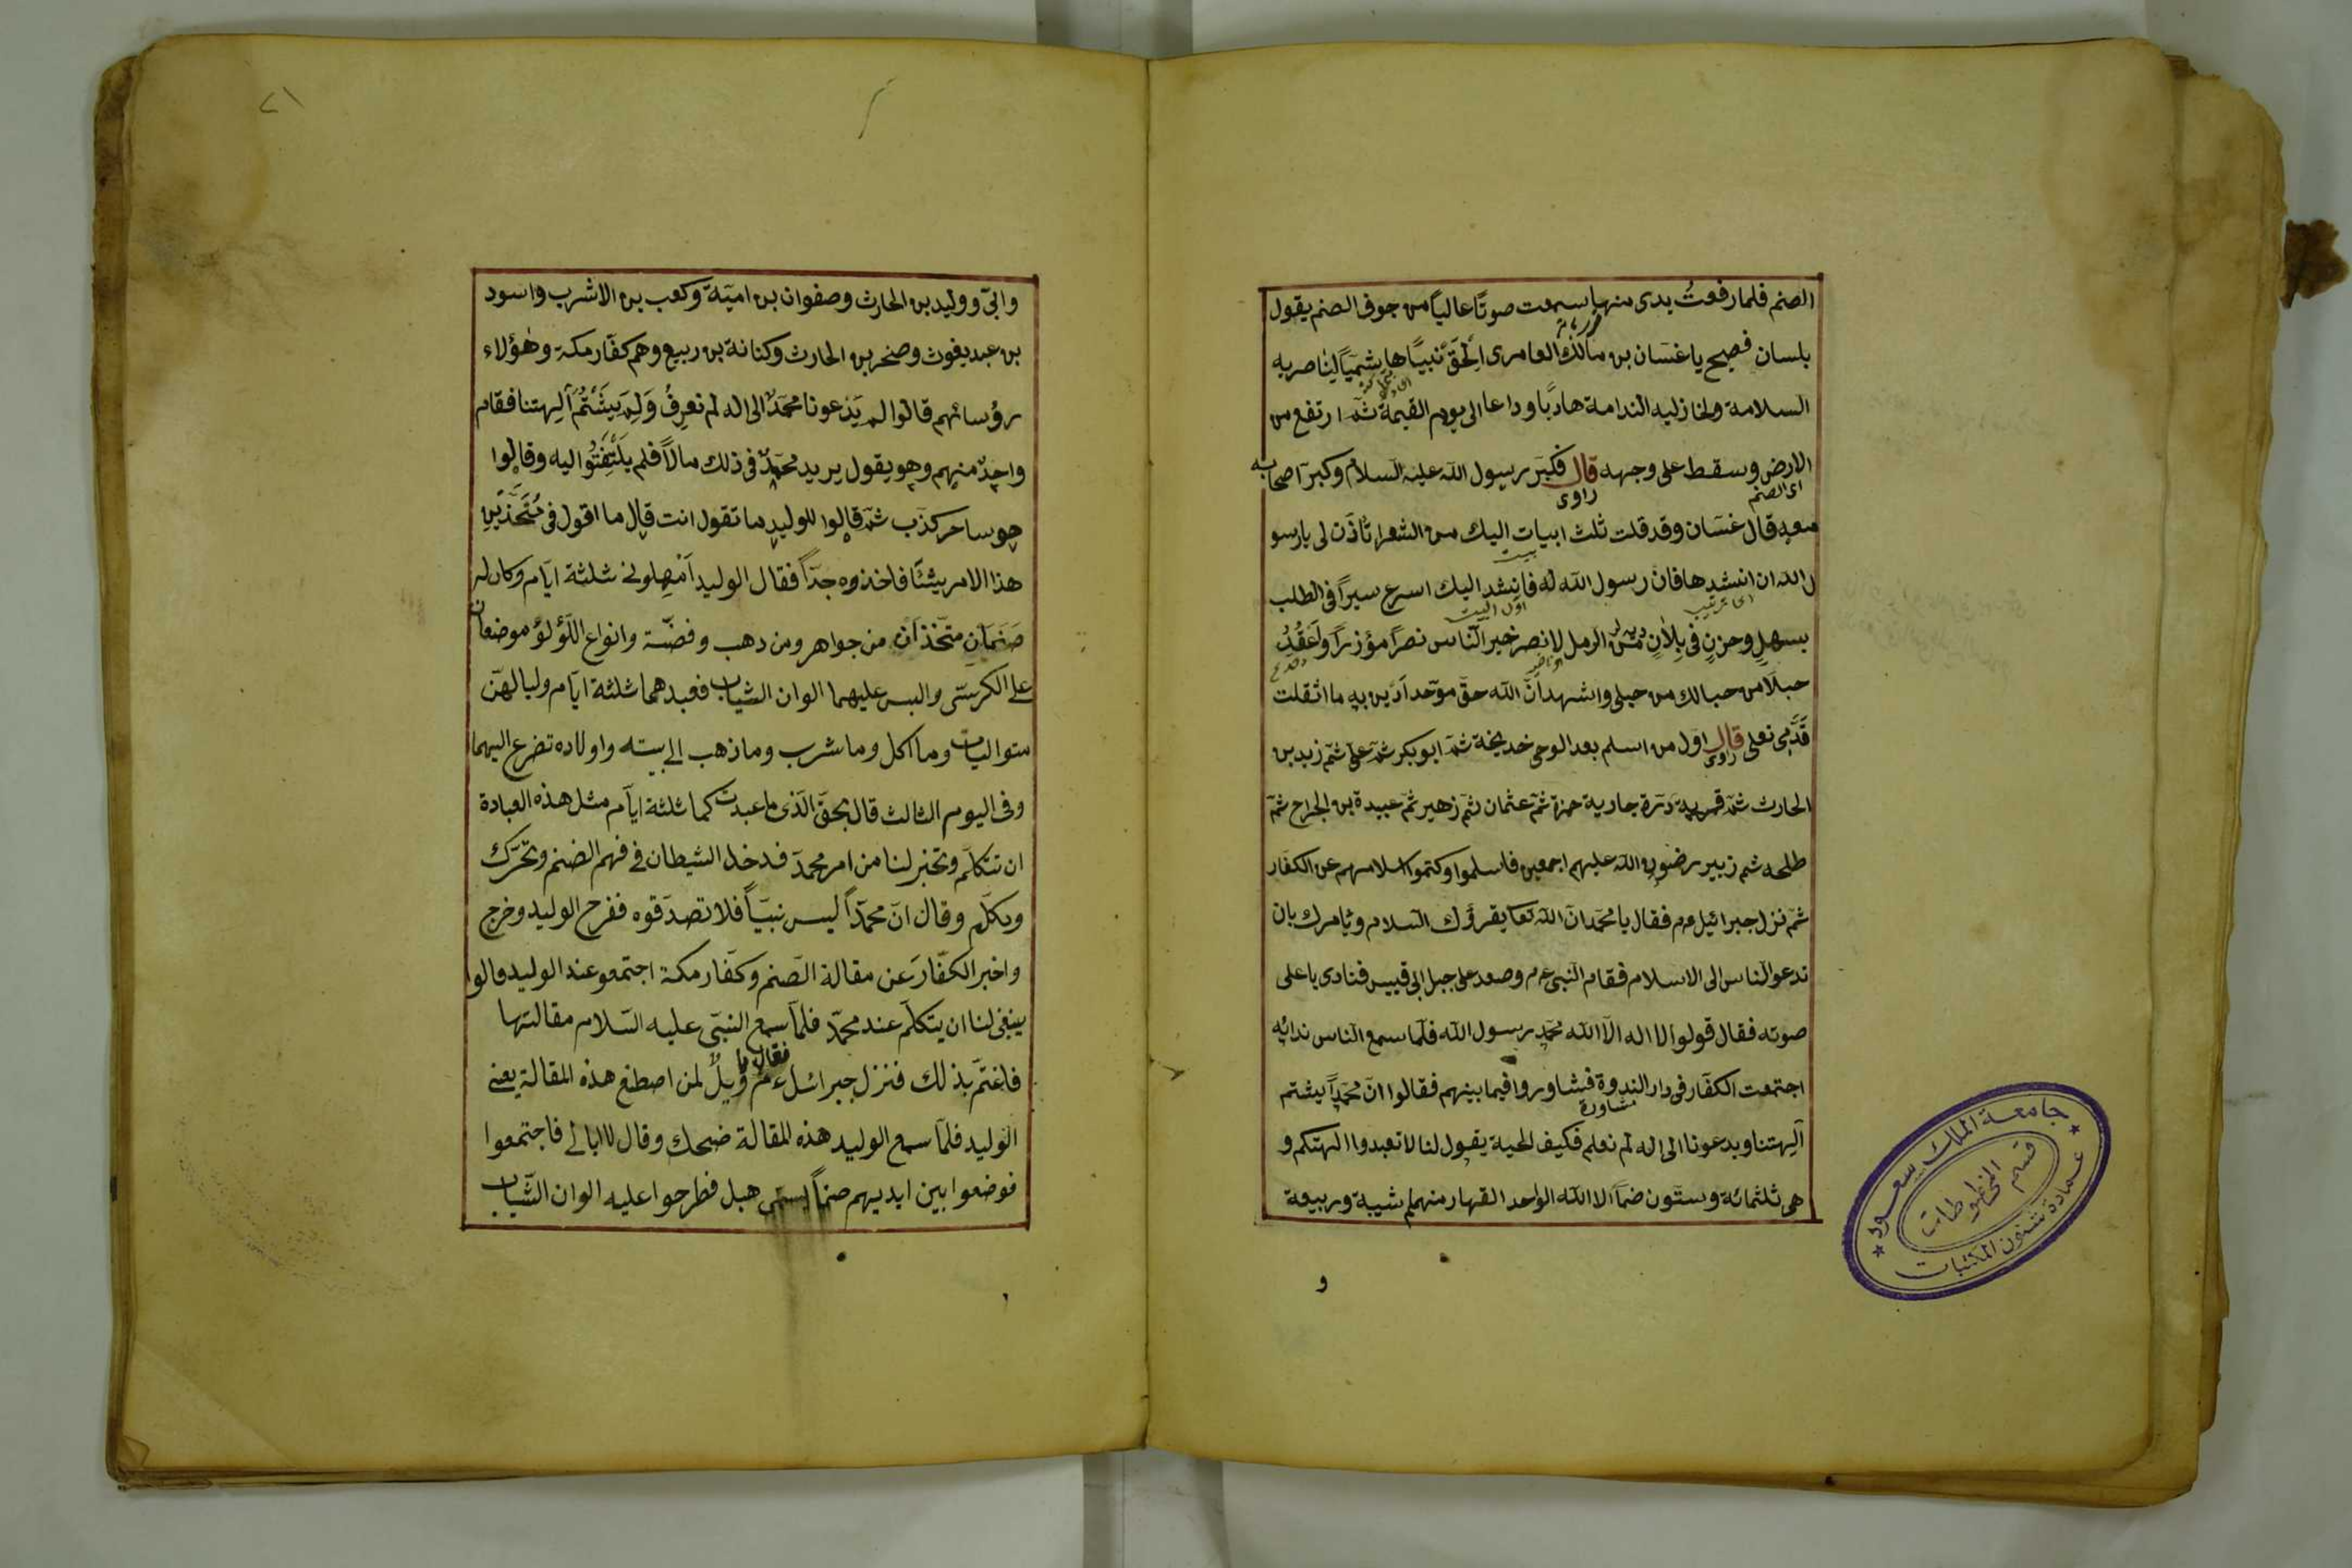 الصنم فلما رفعتُ يدى منها سمعت صوتًا عالياً من جوف الصنم يقول
بلسان فصيح يا غسّان بن مالك العامرى الحقّ نبيًا هاشميًا لناصريه
السلامة ولخاذليه الندامة هاديًا وداعا الى يوم القيمة ثمّ ارتفع من
الارض وسقط على وجهه قال فكبّر رسول الله عليه السلام وكبّر اصحابه
اى الصنم
راوى
معه قال غسّان وقد قلت ثلث ابيات اليك من الشعر اتأذن لى يا رسو
بيت
ل الله ان انشدها فان رسول الله له فانشد اليك اسرع سيراً فى الطلب
اول البيت
بسهلٍ وحزنٍ فى بلانٍ من الرمل لانصر خير النّاس نصرًا مؤزراً واعقُدُ
حبلًا من حبالك من حبلى واشهد انّ الله حقّ موّحد ادين به ما اثقلت
قدمى نعلى قال اول من اسلم بعد الوحى خديجة ثمّ ابو بكر ثمّ علىّ ثمّ زيد بن
راوى
الحارث ثمّ درّة جارية حمزة ثمّ عثمان ثمّ زهير ثمّ عبيدة بن الجراح ثمّ
طلحه ثم زبير رضوان الله عليهم اجمعين فاسلموا وكتموا اسلامهم عن الكفّار
ثمّ نزل جبرائيل عم فقال يا محمّد انّ الله تعا يقرؤك السلام ويأمرك بان
تدعو الناس الى الاسلام فقام النبى عم وصعد على جبل ابى قبيس فنادى باعلى
صوته فقال قولوا لا اله الّا الله محمّد رسول الله فلّما سمع الناس ندائه
اجتمعت الكفّار فى دار الندوة فشاوروا فيما بينهم فقالوا انّ محمّداً يشتم
مشاورة
آلهتنا ويدعونا الى اله لم نعلم فكيف الحية يقول لنا لا تعبدوا الهتكم و
هى ثلثمائة وستّون صنمًا الا الله الواحد القهار منهم شيبة وربيعة
و
جامعة الملك سعود
قسم المخطوطات
عمادة شئون المكتبات
٢١
وابىّ ووليد بن الحارث وصفوان بن اميّة وكعب بن الاشرب واسود
بن عبد يغوث وصخر بن الحارث وكنانة بن ربيع وهم كفّار مكة وهؤلاء
رؤسائهم قالوا لم يدعونا محمّدٌ الى اله لم نعرفُ وَلِمَ يشتُم آلهتنا فقام
واحدٌ منهم وهو يقول يريد محمّدٌ فى ذلك مالًا فلم يلتفتُوا اليه وقالوا
هو ساحر كذّب ثمّ قالوا للوليد ما تقول انت قال ما اقول فى
هذا الامر شئًا فاخذوه جدّاً فقال الوليد امهلونى ثلثة ايّام وكان له
صَنَمَانِ متّخذانِ من جواهر ومن دهب وفضّة وانواع اللّؤلؤ موضعان
على الكرسّى والبس عليهما الوان الثياب فعبدهما ثلثة ايّام ولياليهنّ
متواليات وما اكل وما شرب وما ذهب الى بيته واولاده تضرع اليهما
وفى اليوم الثالث قال بحقّ الّذى ما عبدتكما ثلثة ايّام مثل هذه العبادة
ان تتكلّم وتخبر لنا من امر محمّد فدخل الشيطان فى فهم الصنم وتحرّك
وتكلّم وقال انّ محمّداً ليس نبيّاً فلا تصدّقوه ففرح الوليد وخرج
واخبر الكفّارَ عن مقالة الصّنم وكفّار مكة اجتمعو عند الوليد وقالوا
ينبغى لنا ان يتكلّم عند محمّد فلمّا سمع النبىّ عليه السّلام مقالتها
فاغتمّ بذلك فنزل جبرائل عم فقال يا ويلٌ لمن اصطنع هذه المقالة يعنى
الوليد فلمّا سمع الوليد هذه المقالة ضحك وقال لا ابالى فاجتمعوا
فوضعوا بين ايديهم صنماً يسمّى هبل فطرحوا عليه الوان الثّياب